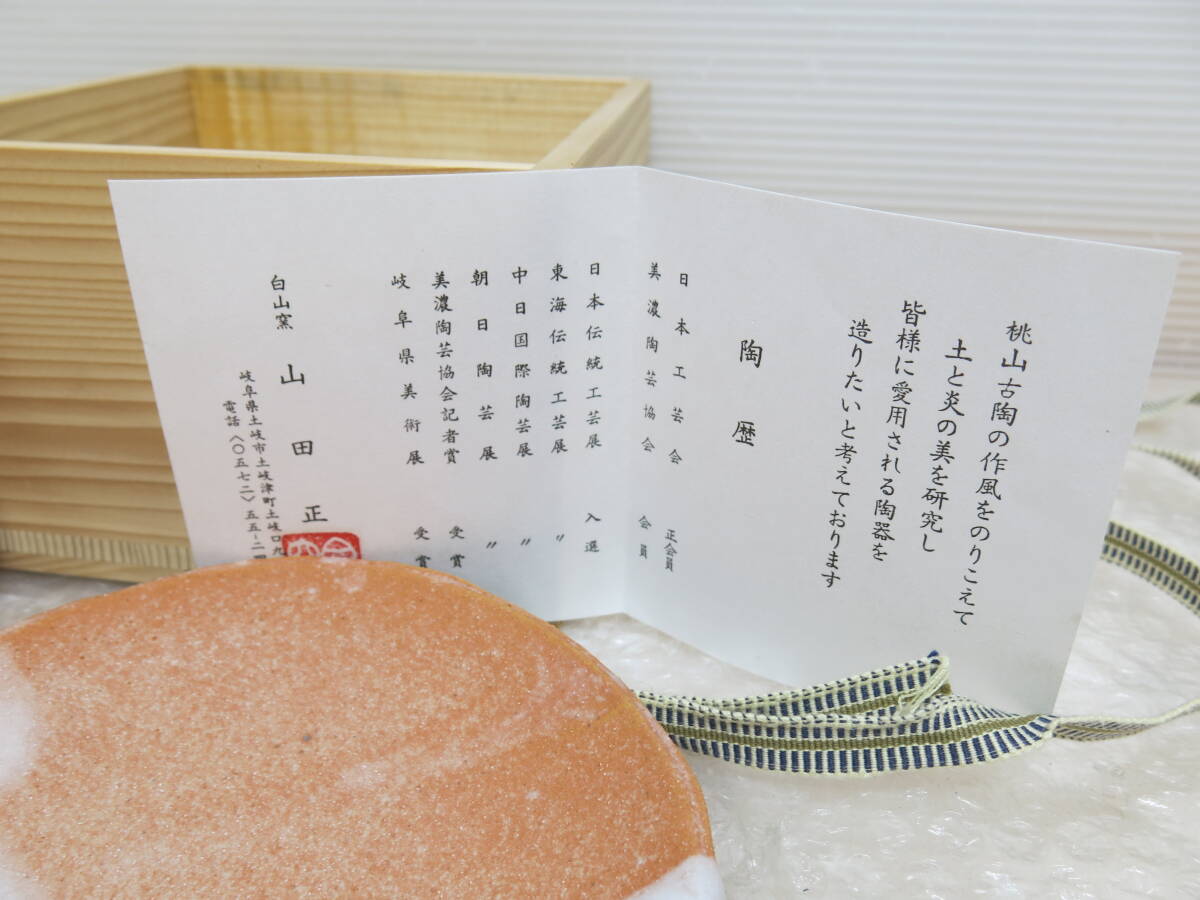 桃山古陶の作風をのりこえて
土と炎の美を研究し
皆様に愛用される陶器を
造りたいと考えております
陶歴
日本工芸会 正会員
美濃陶芸協会 会員
日本伝統工芸展 入選
東海伝統工芸展 〃
中日国際陶芸展 〃
朝日陶芸展 〃
美濃陶芸協会記者賞 受賞
岐阜県美術展 受賞
白山窯 山田正
岐阜県土岐市土岐津町土岐口
電話〈〇五七二〉五五-二